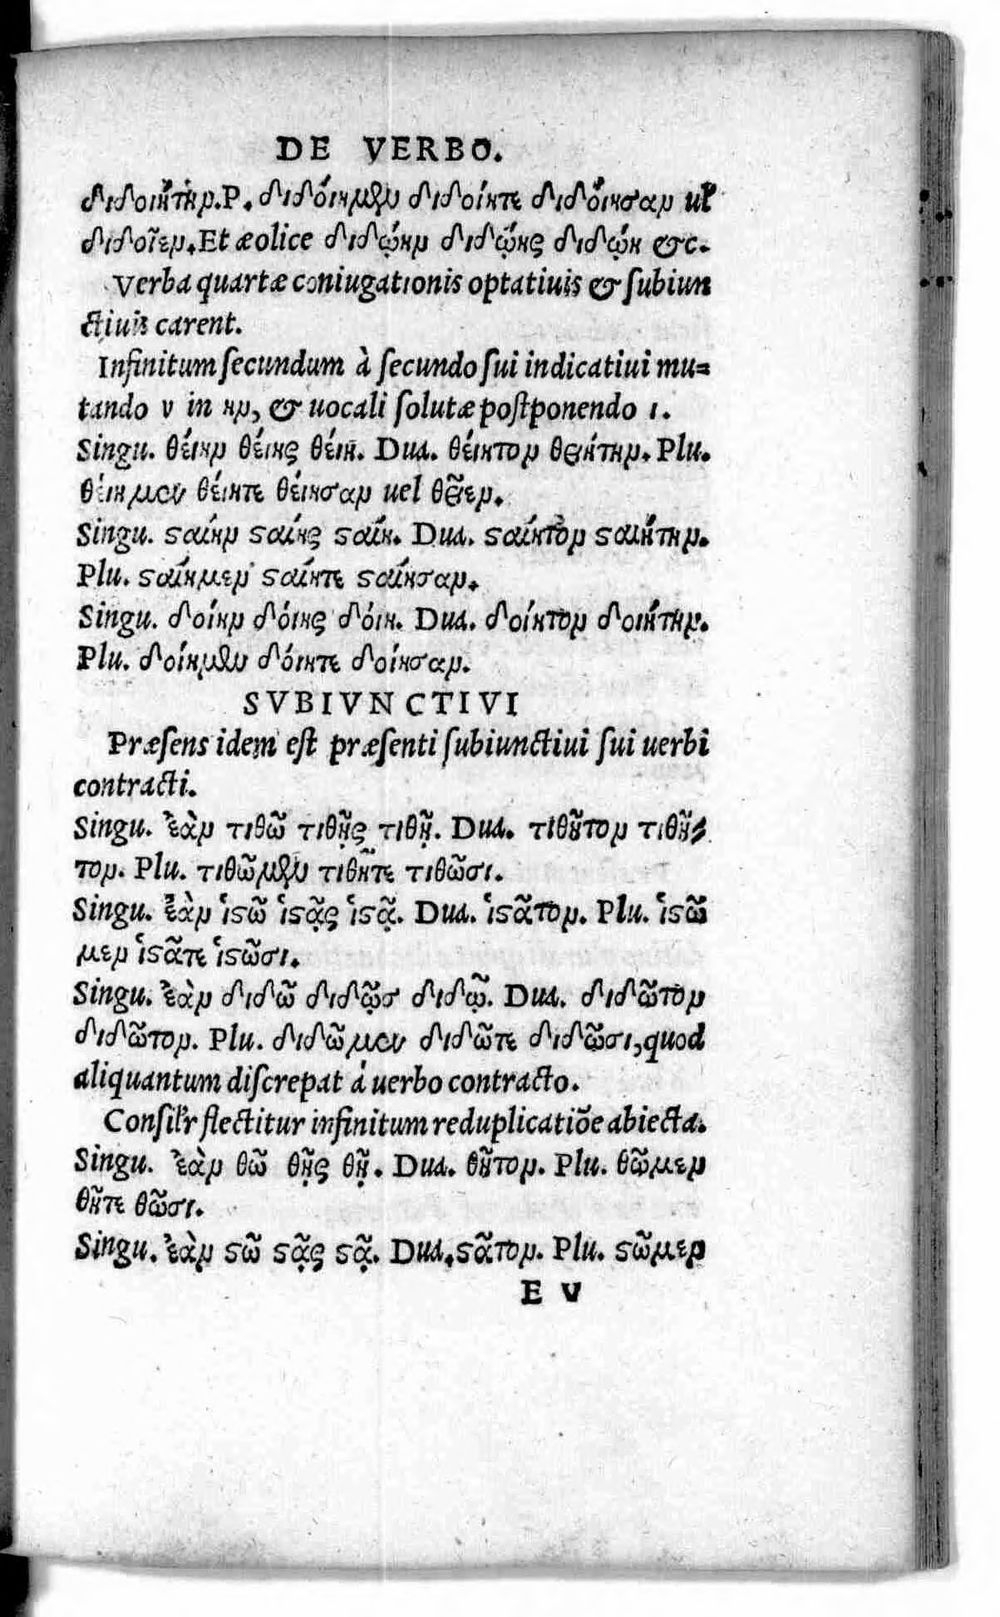 DE VERBO.
διδοιήτην.P. διδόιημεν διδοίητε διδόιησαν uel
διδοῖεν. Et æolice διδῴην διδῴης διδῴη &c.
Verba quartæ coniugationis optatiuis & ſubiun
ctiuis carent.
Infinitum ſecundum à ſecundo ſui indicatiui mu=
tando ν in ην, & uocali ſolutæ poſtponendo ι.
Singu. θέιην θέιης θέιη. Dua. θέιητον θειήτην. Plu.
θέιημεν θέιητε θέιησαν uel θεῖεν.
Singu. ϛαίην ϛαίης ϛαίη. Dua. ϛαίητον ϛαιήτην.
Plu. ϛαίημεν ϛαίητε ϛαίησαν.
Singu. δοίην δόιης δόιη. Dua. δοίητον δοιήτην.
Plu. δοίημεν δόιητε δοίησαν.
SVBIVNCTIVI
Præſens idem eſt præſenti ſubiunctiui ſui uerbi
contracti.
Singu. ἐὰν τιθῶ τιθῇς τιθῇ. Dua. τιθῆτον τιθῆ=
τον. Plu. τιθῶμεν τιθῆτε τιθῶσι.
Singu. ἐὰν ἱϛῶ ἱϛᾷς ἱϛᾷ. Dua. ἱϛᾶτον. Plu. ἱϛῶ
μεν ἱϛᾶτε ἱϛῶσι.
Singu. ἐὰν διδῶ διδῷσ διδῷ. Dua. διδῶτον
διδῶτον. Plu. διδῶμεν διδῶτε διδῶσι, quod
aliquantum diſcrepat á uerbo contracto.
Conſilr̃ flectitur infinitum reduplicatiõe abiecta.
Singu. ἐὰν θῶ θῇς θῇ. Dua. θῆτον. Plu. θῶμεν
θῆτε θῶσι.
Singu. ἐὰν ϛῶ ϛᾷς ϛᾷ. Dua. ϛᾶτον. Plu. ϛῶμεν
E V